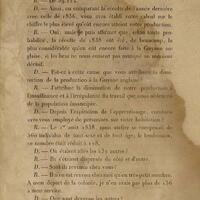 D. — Ainsi, en comparant la récolte de l'année dernière
avec celle de 1836, vous avez établi votre calcul sur le
chiffre le plus élevé qu'ait encore atteint votre production.
R. — Oui, mais je puis affirmer que, selon toute pro-
babilité, la récolte de 1838 eût été, de beaucoup, la
plus considérable qu'on eût encore faite à la Guyane an-
glaise, si les bras ne nous eussent pas manqué au moment
décisif.
D. — Est-ce à cette cause que vous attribuez la dimi-
nution de la production à la Guyane anglaise?
R. — J'attribue la diminution de notre production à
l'insuffisance et à l'irrégularité du travail que nous obtenons
de la population émancipée.
D. — Depuis l'expiration de l'apprentissage, combien
avez-vous employé de personnes sur votre habitation?
R. — Le 1er août 1838 nous mettre se composait de
individus de tout sexe et de tout âge; le lendemain,
ce nombre était réduit à
D. — Où étaient allés les autres?
R. — Ils s'étaient dispersés de côté et d'autre.
D. — Sont-ils revenus chez vous?
R. — Il n'en est revenu chez moi qu'un très-petit nombre.
A mon départ de la colonie, je n'en avais pas plus de 136
à mon service.
D. — Que sont devenus les autres?